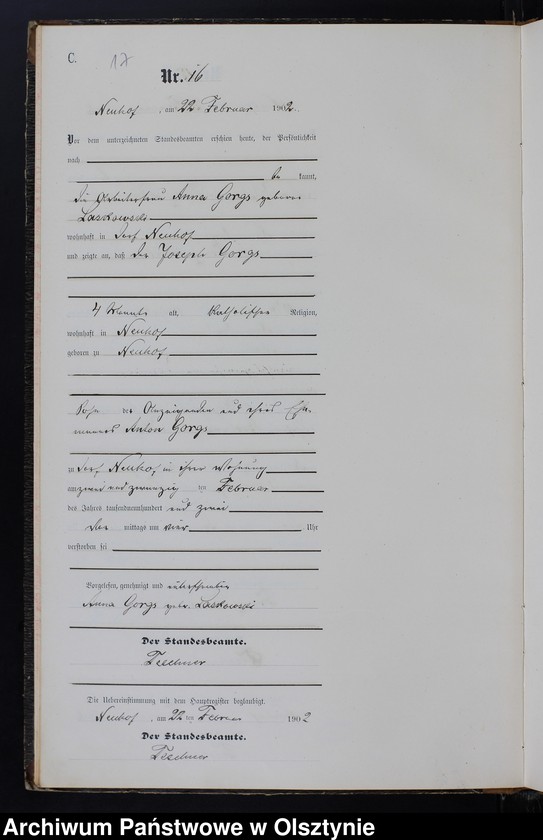 C.
17
Nr. 16
Neuhof, am 22 Februar 1902.
Vor dem unterzeichneten Standesbeamten erschien heute, der Persönlichkeit
nach
be kannt,
die Arbeiterfrau Anna Gorgs geborene
Laskowski
wohnhaft in Dorf Neuhof
und zeigte an, daß der Joseph Gorgs
4 Monate alt, katholischer Religion,
wohnhaft in Neuhof
geboren zu Neuhof
Sohn der Anzeigenden und ihres Ehe-
mannes Anton Gorgs
zu Dorf Neuhof in ihrer Wohnung
am zwei und zwanzig ten Februar
des Jahres tausendneunhundert und zwei
mittags um vier Uhr
verstorben sei
Vorgelesen, genehmigt und unterschrieben
Anna Gorgs geb. Laskowski
Der Standesbeamte.
Teschner
Die Uebereinstimmung mit dem Hauptregister beglaubigt.
Neuhof, am 22 ten Februar 1902
Der Standesbeamte.
Teschner
Archiwum Państwowe w Olsztynie